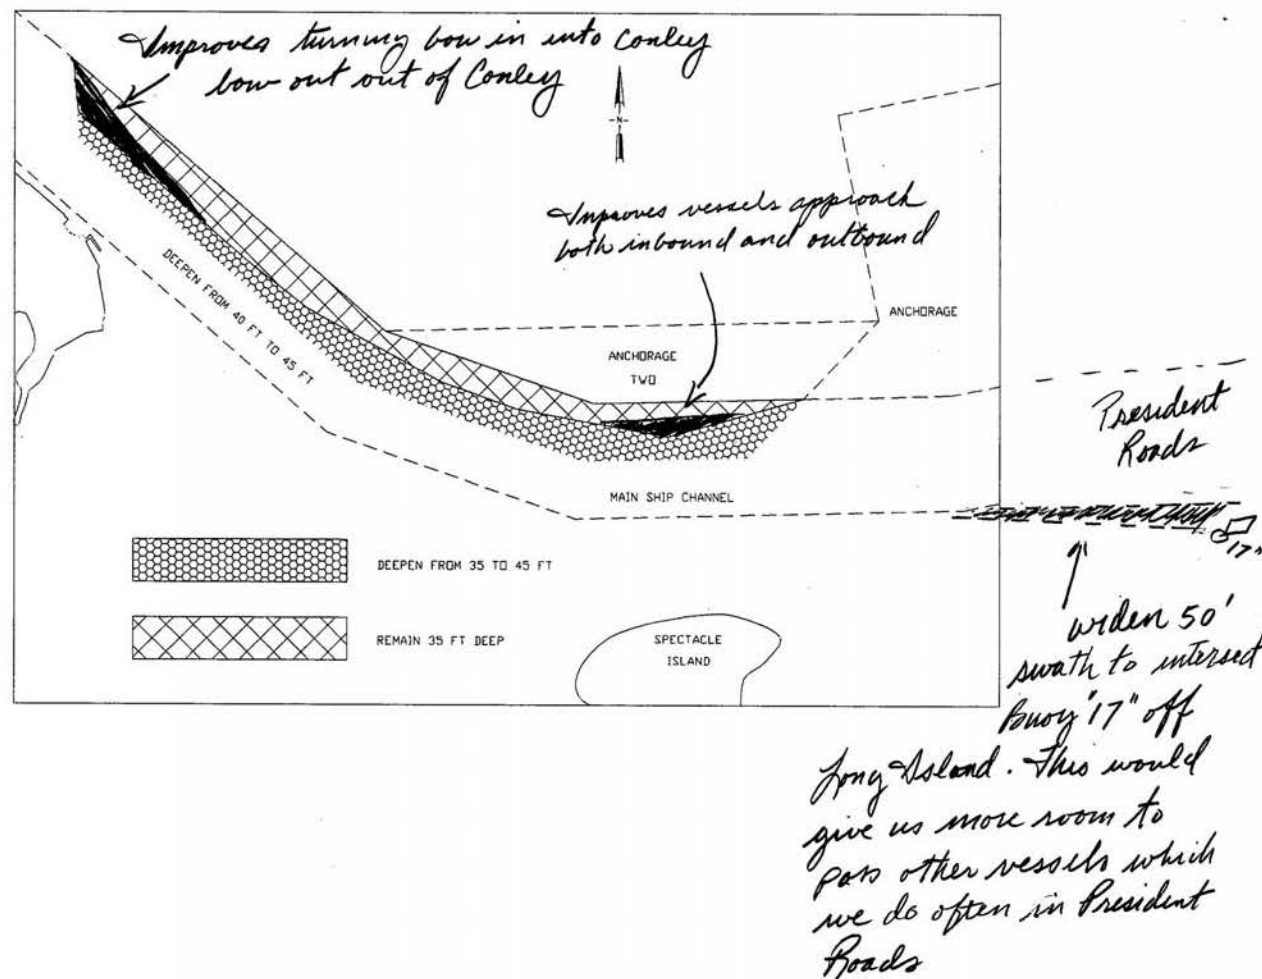 Improves turning bow in into Conley
bow out out of Conley
N
Improves vessels approach
both inbound and outbound
DEEPEN FROM 40 FT TO 45 FT
ANCHORAGE
ANCHORAGE
TWO
President
Roads
MAIN SHIP CHANNEL
17"
DEEPEN FROM 35 TO 45 FT
REMAIN 35 FT DEEP
SPECTACLE
ISLAND
widen 50'
swath to intersect
Buoy "17" off
Long Island. This would
give us more room to
pass other vessels which
we do often in President
Roads